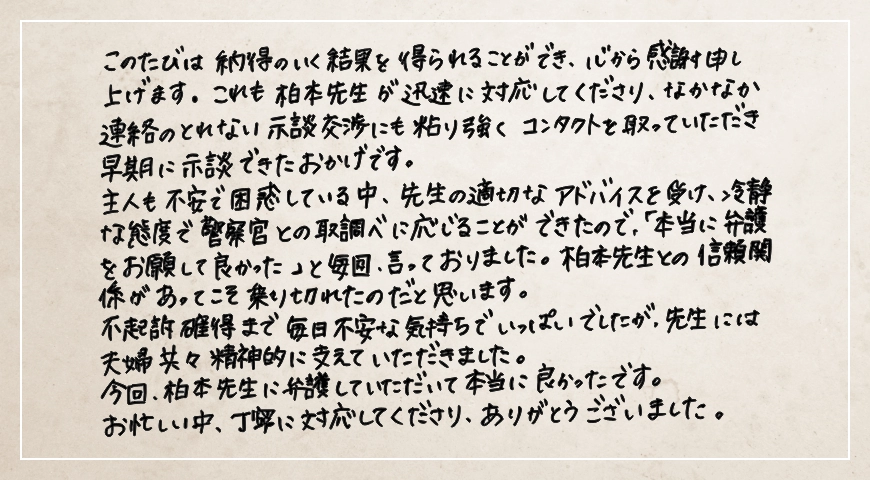 このたびは納得のいく結果を得られることができ、心から感謝申し
上げます。これも柏本先生が迅速に対応してくださり、なかなか
連絡のとれない示談交渉にも粘り強くコンタクトを取っていただき
早期に示談できたおかげです。
主人も不安で困惑している中、先生の適切なアドバイスを受け、冷静
な態度で警察官との取調べに応じることができたので、「本当に弁護
をお願して良かった」と毎回、言っておりました。柏本先生との信頼関
係があってこそ乗り切れたのだと思います。
不起訴確得まで毎日不安な気持ちでいっぱいでしたが、先生には
夫婦共々精神的に支えていただきました。
今回、柏本先生に弁護していただいて本当に良かったです。
お忙しい中、丁寧に対応してくださり、ありがとうございました。